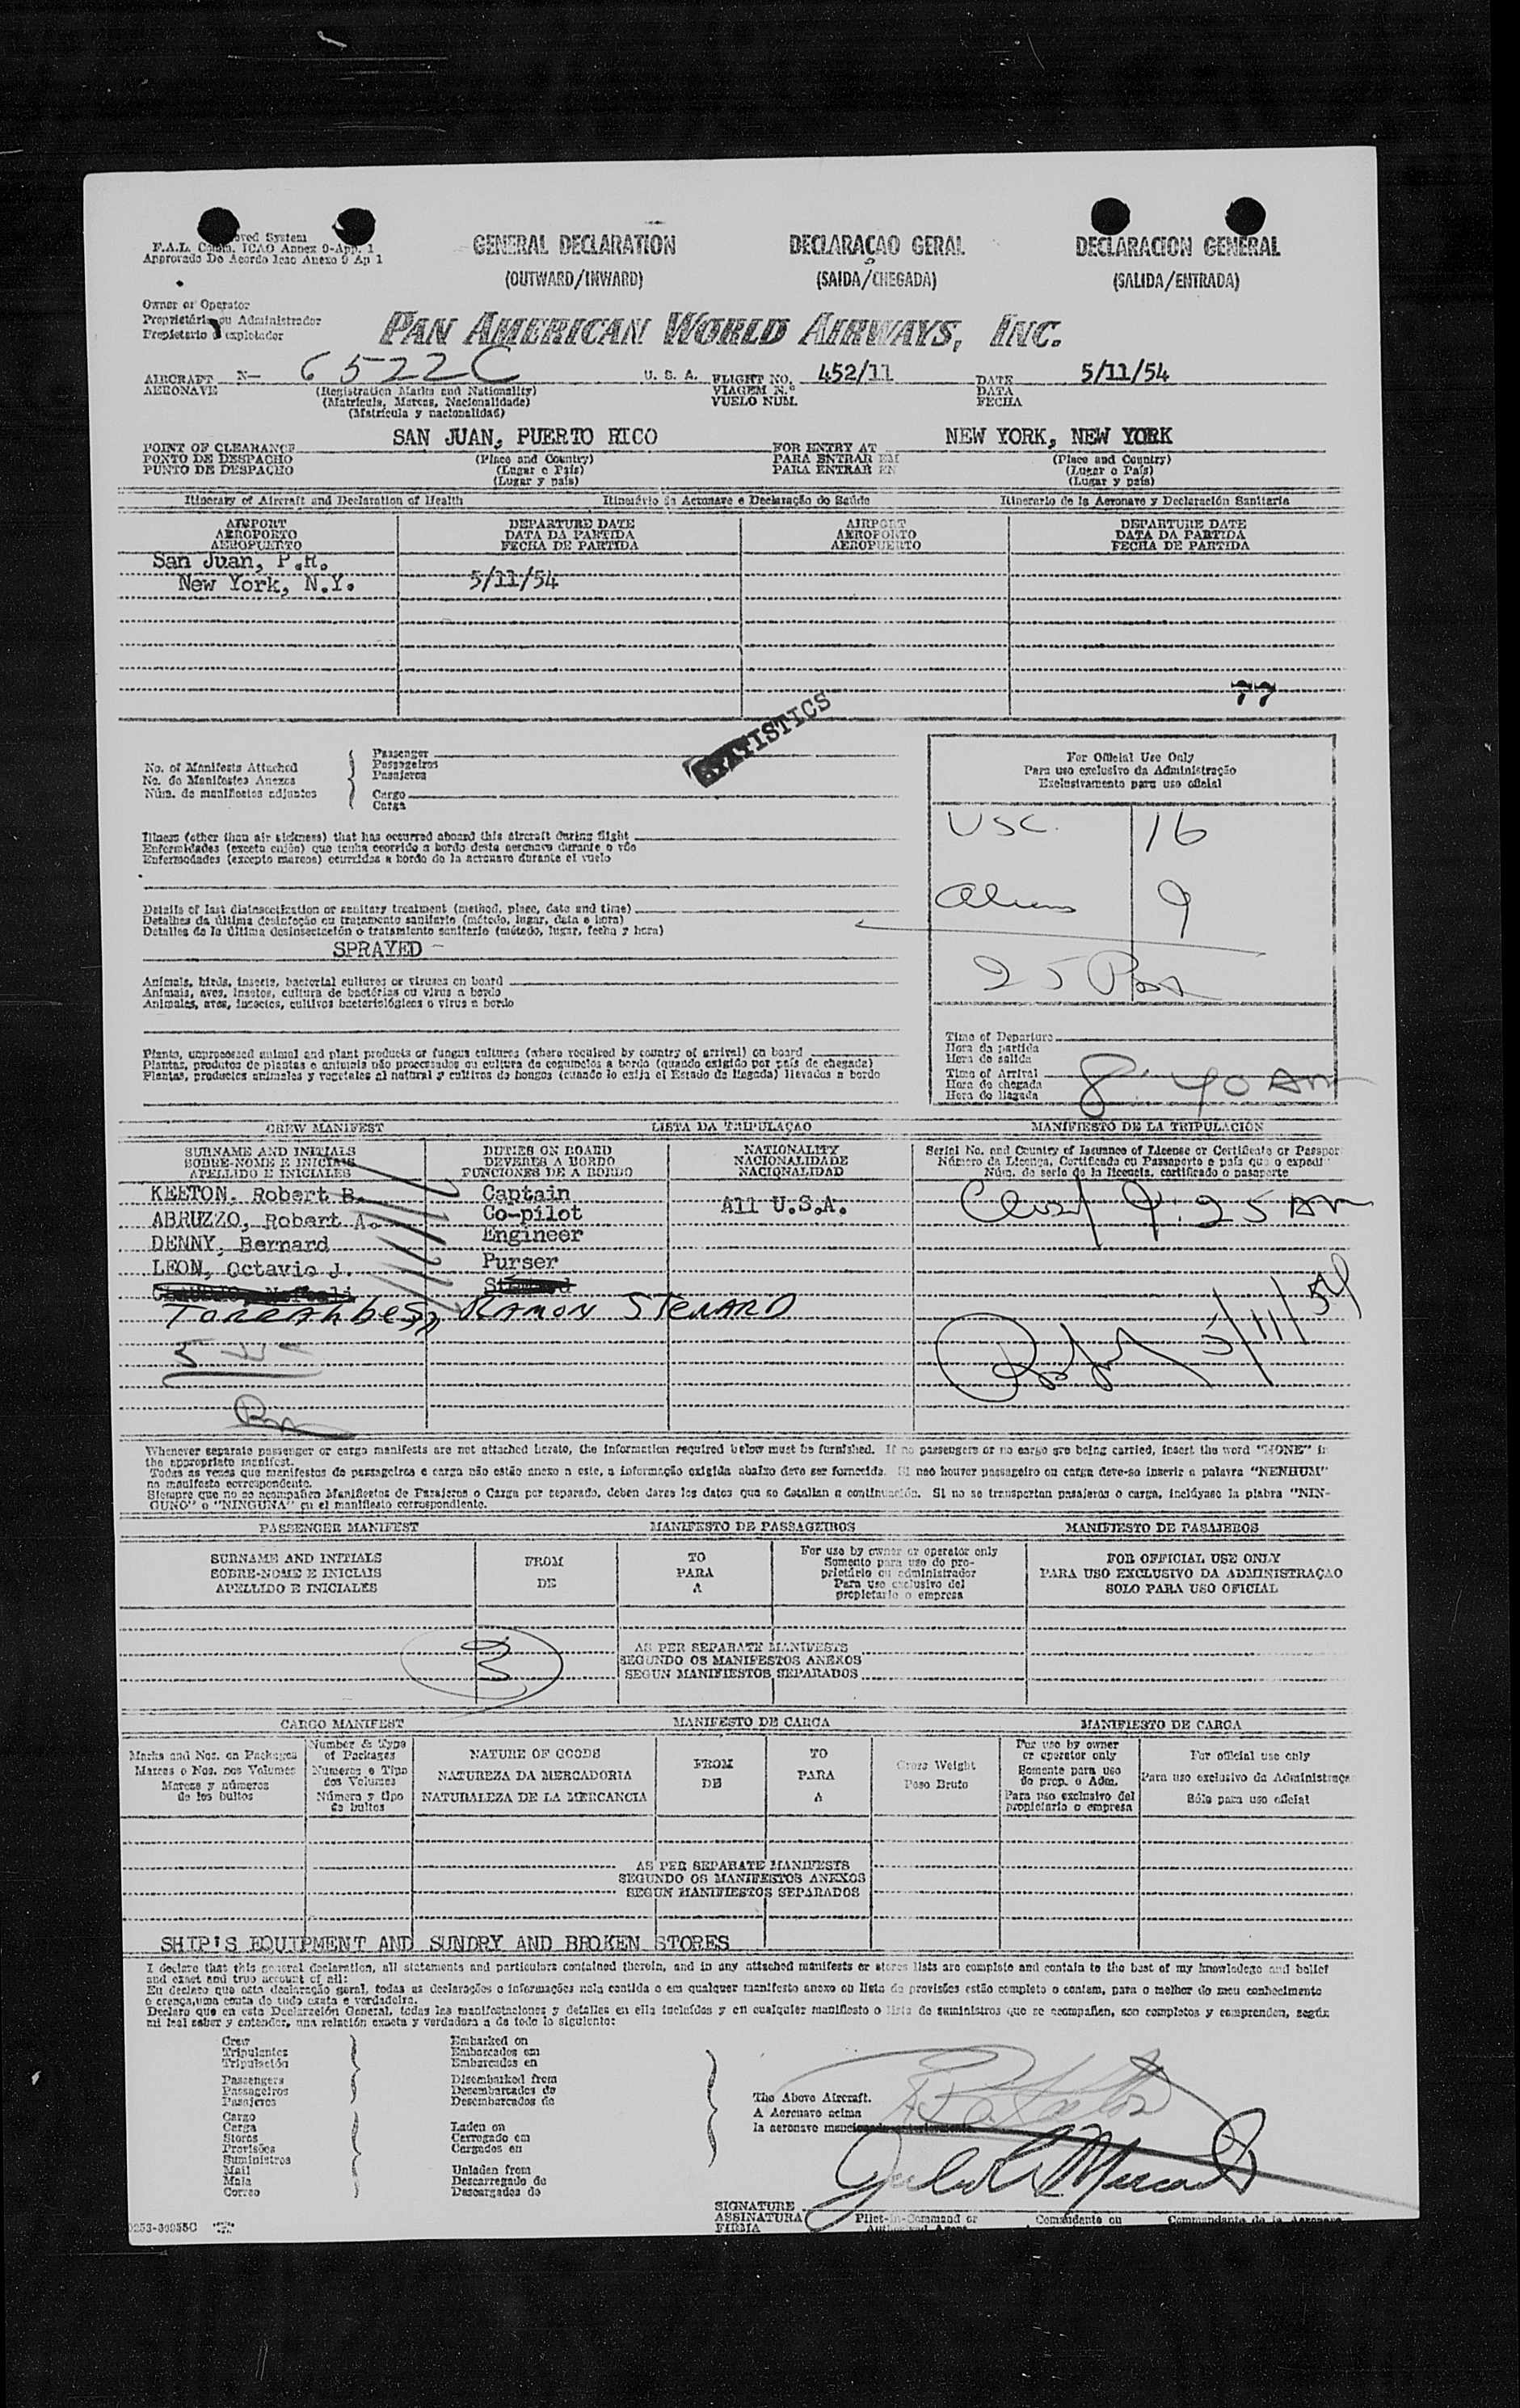 F.A.L. Comm. ICAO Annex 9-App. 1
Approvado De Acordo Icao Anexo 9 Ap 1
GENERAL DECLARATION
(OUTWARD/INWARD)
DECLARAÇAO GERAL
(SAIDA/CHEGADA)
DECLARACION GENERAL
(SALIDA/ENTRADA)
Owner or Operator
Proprietário ou Administrador
Propietario explotador
PAN AMERICAN WORLD AIRWAYS, INC.
AIRCRAFT N- 6522C U. S. A. FLIGHT NO. 452/11 DATE 5/11/54
AERONAVE VIAGEM N.º DATA
VUELO NUM. FECHA
(Registration Marks and Nationality)
(Matricula, Marcas, Nacionalidade)
(Matricula y nacionalidad)
POINT OF CLEARANCE SAN JUAN, PUERTO RICO FOR ENTRY AT NEW YORK, NEW YORK
PONTO DE DESPACHO (Place and Country) PARA ENTRAR EM (Place and Country)
PUNTO DE DESPACHO (Lugar o País) PARA ENTRAR EN (Lugar o País)
(Lugar y país) (Lugar y país)
Itinerary of Aircraft and Declaration of Health Itinerário da Aeronave e Declaração do Saúde Itinerario de la Aeronave y Declaración Sanitaria
AIRPORT DEPARTURE DATE AIRPORT DEPARTURE DATE
AEROPORTO DATA DA PARTIDA AEROPORTO DATA DA PARTIDA
AEROPUERTO FECHA DE PARTIDA AEROPUERTO FECHA DE PARTIDA
San Juan, P.R.
New York, N.Y. 5/11/54
77
STATISTICS
No. of Manifests Attached
No. de Manifestos Anexos
Núm. de manifiestos adjuntos
Passenger
Passageiros
Pasajeros
Cargo
Carga
For Official Use Only
Para uso exclusivo da Administração
Exclusivamente para uso oficial
USC. 16
Aliens 9
25 Pax
Illness (other than air sickness) that has occurred aboard this aircraft during flight
Enfermidades (exceto enjôo) que tenha ocorrido a bordo desta aeronave durante o vôo
Enfermedades (excepto mareos) ocurridas a bordo de la aeronave durante el vuelo
Details of last disinsectization or sanitary treatment (method, place, date and time)
Detalhes da última desinfeção ou tratamento sanitario (método, lugar, data e hora)
Detalles de la última desinsectación o tratamiento sanitario (método, lugar, fecha y hora)
SPRAYED -
Animals, birds, insects, bacterial cultures or viruses on board
Animais, aves, insetos, cultura de bactérias ou virus a bordo
Animales, aves, insectos, cultivos bacteriológicos o virus a bordo
Plants, unprocessed animal and plant products or fungus cultures (where required by country of arrival) on board
Plantas, produtos de plantas e animais não processados ou cultura de cogumelos a bordo (quando exigido por país de chegada)
Plantas, productos animales y vegetales al natural y cultivos de hongos (cuando lo exija el Estado de llegada) llevados a bordo
Time of Departure
Hora da partida
Hora de salida
Time of Arrival
Hora de chegada
Hora de llegada
8:40 Am
CREW MANIFEST LISTA DA TRIPULAÇAO MANIFIESTO DE LA TRIPULACION
SURNAME AND INITIALS DUTIES ON BOARD NATIONALITY Serial No. and Country of Issuance of License or Certificate or Passpor
SOBRE-NOME E INICIAIS DEVERES A BORDO NACIONALIDADE Número da Licença, Certificado ou Passaporte e país que o expedi
APELLIDO E INICIALES FUNCIONES DE A BORDO NACIONALIDAD Núm. de serie de la licencia, certificado o pasaporte
KEETON, Robert B. Captain
ABRUZZO, Robert A. Co-pilot All U.S.A. 9:25 Am
DENNY, Bernard Engineer
LEON, Octavio J. Purser
RAMON STEWARD
5/11/54
Whenever separate passenger or cargo manifests are not attached hereto, the information required below must be furnished. If no passengers or no cargo are being carried, insert the word "NONE" in
the appropriate manifest.
Todas as vezes que manifestos de passageiros e carga não estão anexo a este, a informação exigida abaixo deve ser fornecida. Si nao houver passageiro ou carga deve-so inserir a palavra "NENHUM"
no manifesto correspondente.
Siempre que no se acompañen Manifiestos de Pasajeros o Carga por separado, deben darse los datos que se detallan a continuación. Si no se transportan pasajeros o carga, inclúyase la plabra "NIN-
GUNO" o "NINGUNA" en el manifiesto correspondiente.
PASSENGER MANIFEST MANIFESTO DE PASSAGEIROS MANIFIESTO DE PASAJEROS
SURNAME AND INITIALS
SOBRE-NOME E INICIAIS
APELLIDO E INICIALES
FROM
DE
TO
PARA
A
For use by owner or operator only
Somento para uso do pro-
prietário ou administrador
Para uso exclusivo del
propietario o empresa
FOR OFFICIAL USE ONLY
PARA USO EXCLUSIVO DA ADMINISTRAÇAO
SOLO PARA USO OFICIAL
3
AS PER SEPARATE MANIFESTS
SEGUNDO OS MANIFESTOS ANEXOS
SEGUN MANIFIESTOS SEPARADOS
CARGO MANIFEST MANIFESTO DE CARGA MANIFIESTO DE CARGA
Marks and Nos. on Packages
Marcas o Nos. nos Volumes
Marcas y números
de los bultos
Number & Type
of Packages
Numeros e Tipo
dos Volumes
Número y tipo
de bultos
NATURE OF GOODS
NATUREZA DA MERCADORIA
NATURALEZA DE LA MERCANCIA
FROM
DE
TO
PARA
A
Gross Weight
Peso Bruto
For use by owner
or operator only
Somente para uso
do prop. o Adm.
Para uso exclusivo del
propietario o empresa
For official use only
Para uso exclusivo da Administraça
Sólo para uso oficial
AS PER SEPARATE MANIFESTS
SEGUNDO OS MANIFESTOS ANEXOS
SEGUN MANIFIESTOS SEPARADOS
SHIP'S EQUIPMENT AND SUNDRY AND BROKEN STORES
I declare that this general declaration, all statements and particulars contained therein, and in any attached manifests or stores lists are complete and contain to the best of my knowledege and belief
and exact and true account of all:
Eu declaro que esta declaração geral, todas as declarações e informações nela contida e em qualquer manifesto anexo ou lista de provisões estão completo e contem, para o melhor do meu conhecimento
e crença, uma conta de tudo exata e verdadeira.
Declaro que en esta Declarzción General, todas las manifestaciones y detalles en ella incluídos y en cualquier manifiesto o lista de suministros que se acompañen, son completos y comprenden, según
mi leal saber y entender, una relación exacta y verdadera a de todo lo siguiente:
Crew
Tripulantes
Tripulación
Passengers
Passageiros
Pasajeros
Cargo
Carga
Stores
Provisões
Suministros
Mail
Mala
Correo
Embarked on
Embarcados em
Embarcados en
Disembarked from
Desembarcados de
Desembarcados de
Laden on
Carregado em
Cargados en
Unladen from
Descarregado de
Descargados de
The Above Aircraft.
A Aeronave acima
la aeronave mencionada anteriormente
SIGNATURE
ASSINATURA
FIRMA
Pilot-in-Command or Comandante ou Commandante de la Aeronave